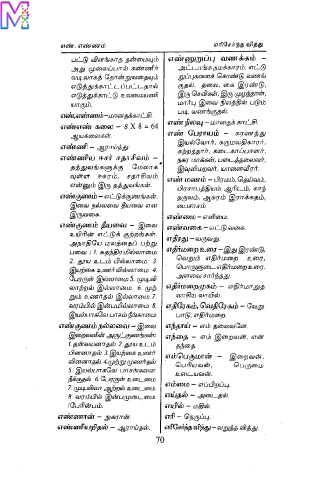 எண். எண்ணம்
எரிசேர்ந்த வித்து
பட்டு விளங்காத தன்மையும்
அது முலைப்பால் கண்ணீர்
வடிவாகத் தோன்றுவதையும்
எடுத்துக்காட்டப்பட்டதால்
எடுத்துக்காட்டு உவமையணி
யாகும்.
எண்,எண்ணம்–மானதக்காட்சி.
எண்எண் கலை – 8 X 8 = 64
ஆயகலைகள்.
எண்ணி – ஆராய்ந்து
எண்ணிய ஈசர் சதாசிவம் –
தத்துவங்களுக்கு மேலாக
வுள்ள ஈசுரம், சதாசிவம்
என்னும் இரு தத்துவங்கள்.
எண்குணம் – எட்டுக்குணங்கள்.
இவை நல்லவை தீயவை என
இருவகை.
எண்குணம் தீயவை – இவை
உயிரின் எட்டுக் குற்றங்கள்.
அநாதியே மலத்தைப் பற்று
பவை : 1. சுதந்திரமில்லாமை
2. தூய உடம் பில்லாமை 3.
இயற்கை உணர்வில்லாமை 4.
பேரருள் இல்லாமை 5. முடிவி
லாற்றல் இல்லாமை 6. முற்
றும் உணர்தல் இல்லாமை 7.
வரம்பில் இன்பமில்லாமை 8.
இயல்பாகவே பாசம் நீங்காமை
எண்குணம் நல்லவை – இவை
இறைவனின் அருட்குணங்கள்:
1 தன்வயனாதல் 2. தூய உடம்
பினனாதல் 3. இயற்கை உணர்
வினனாதல் 4. முற்று முணர்தல்
5. இயல்பாகவே பாசங்களை
நீக்குதல் 6. பேரருள் உடைமை
7. முடிவிலா ஆற்றல் உடைமை
8. வரம்பில் இன்பமுடைமை
(பேரின்பம்.
எண்ணான் – நுகரான்.
எண்ணியறிதல் – ஆராய்தல்.
எண்ணுறுப்பு வணக்கம் –
அட்டாங்கநமக்காரம். எட்டு
றுப்புகளைக் கொண்டு வணங்
குதல். தலை, கை இரண்டு,
இரு செவிகள், இரு முழந்தாள்,
மார்பு இவை நிலத்தில் படும்
படி வணங்குதல்.
எண் நிலவு – மானதக் காட்சி.
எண் பேராயம் – கரணத்து
இயல்வோர், கருமவிதிகாரர்,
சுற்றத்தார், கடைகாப்பாளர்,
நகர மாக்கள், படைத்தலைவர்,
இவுளிமறவர், யானைவீரர்.
எண் மணம் – பிரமம், தெய்வம்,
பிரசாபத்தியம் ஆரிடம், காந்
தருவம், ஆசுரம் இராக்கதம்,
பைசாசம்.
எண்மை – எளிமை.
எண்வகை – எட்டு வகை.
எதிரது – வருவது.
எதிர்மறை உரை – இது இரண்டு,
வெறும் எதிர்மறை உரை,
பொருளுடை எதிர்மறை உரை.
அளவை சார்ந்தது.
எதிர்மறைமுகம் – எதிர்மாறுத
லாகிய வாயில்
எதிரேகம், வெதிரேகம் – வேறு
பாடு, எதிர்மறை.
எந்தாய் – எம் தலைவனே.
எந்தை – எம் இறைவன், என்
தந்தை
எம்பெருமான் – இறைவன்,
பெரியவன், பெருமை
உடையவன்.
எம்மை – எப்பிறப்பு.
எய்தல் – அடைதல்.
எயில் – மதில்.
எரி – நெருப்பு.
எரிசேர்ந்த வித்து – வறுத்த வித்து.
70